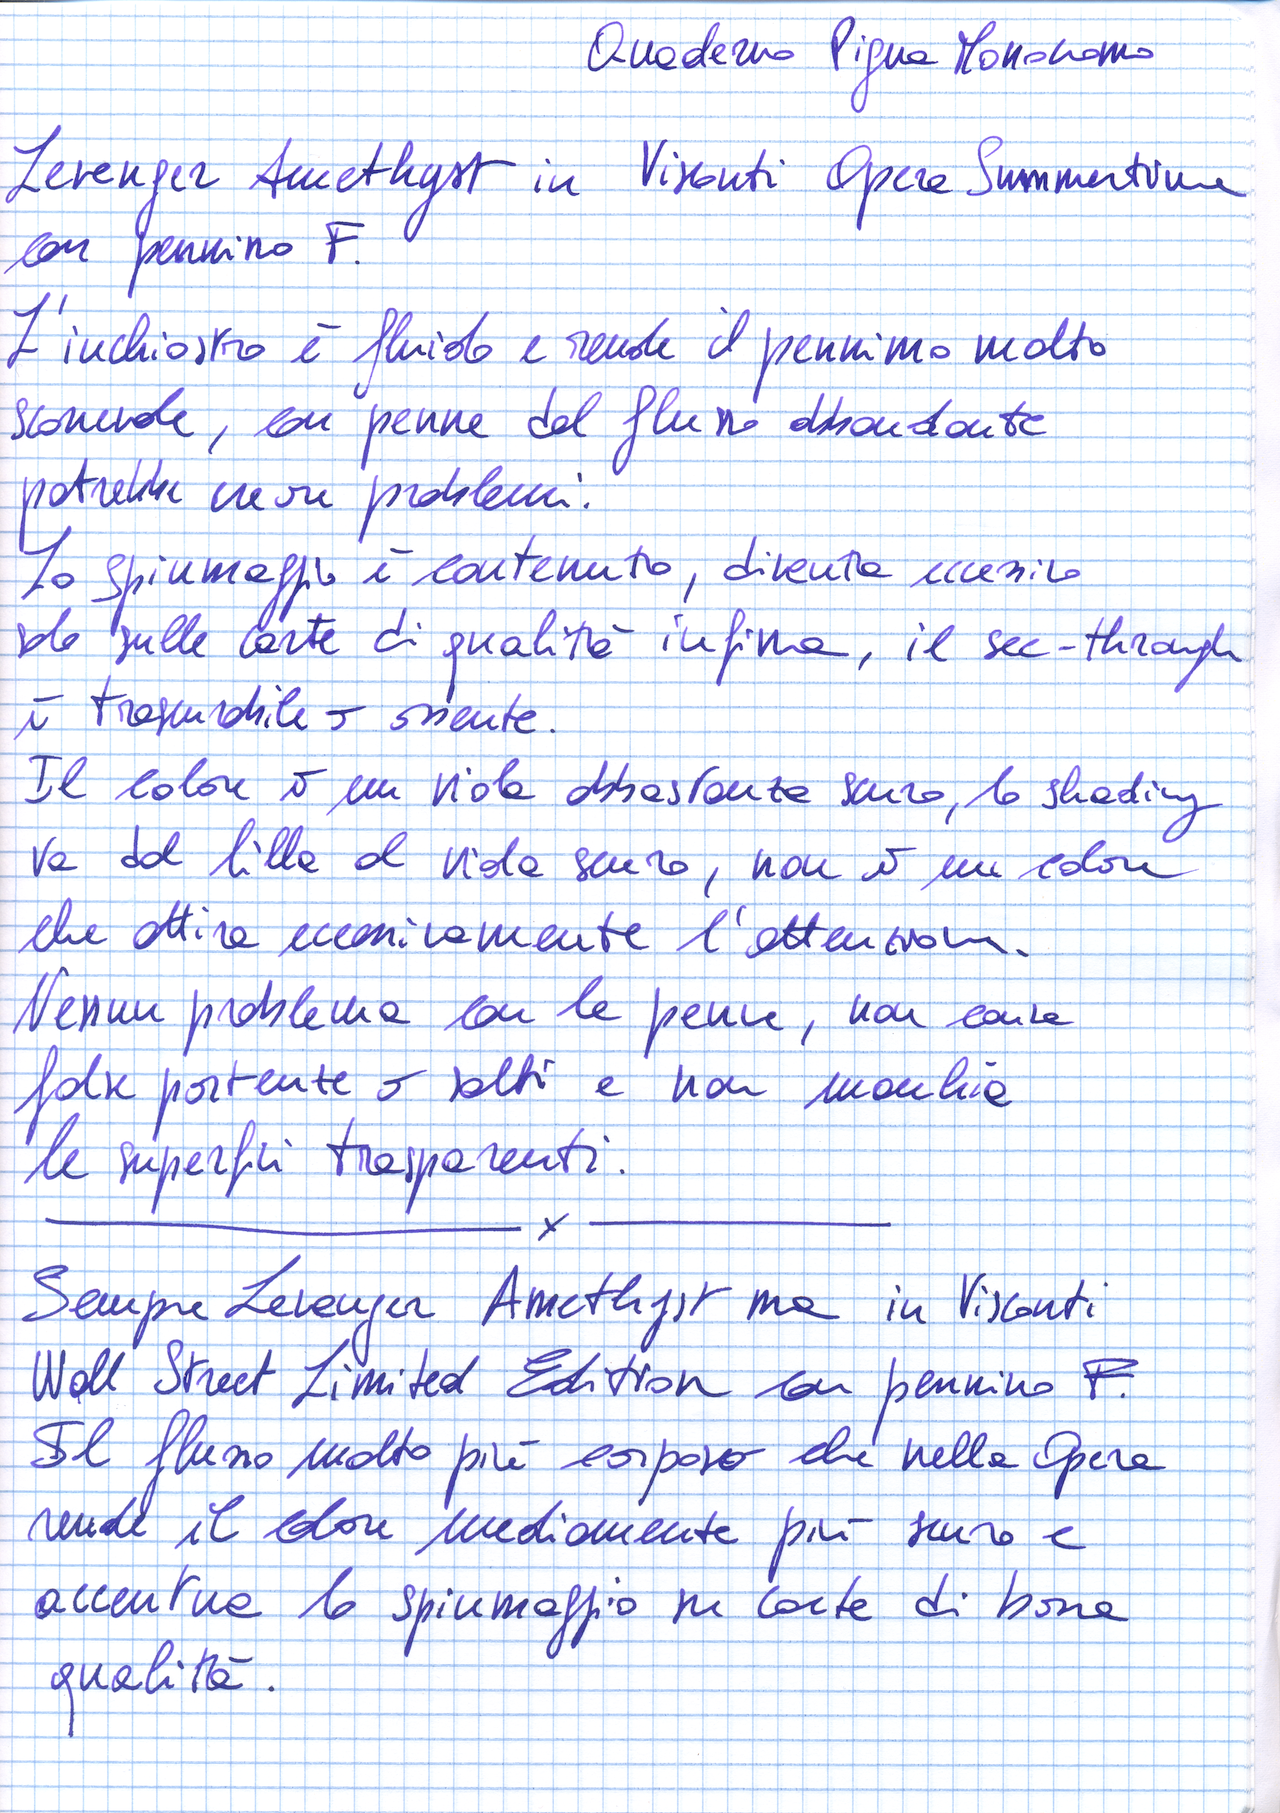 Quaderno Pigna Monocromo
Levenger Amethyst in Visconti Opera Summertime
con pennino F.
L'inchiostro è fluido e rende il pennino molto
scorrevole, con penne dal flusso abbondante
potrebbe creare problemi.
Lo spiumaggio è contenuto, diventa eccessivo
solo sulle carte di qualità infima, il see-through
è trascurabile o assente.
Il colore è un viola abbastanza scuro, lo shading
va dal lilla al viola scuro, non è un colore
che attira eccessivamente l'attenzione.
Nessun problema con le penne, non causa
false partente o salti e non macchia
le superfici trasparenti.
x
Sempre Levenger Amethyst ma in Visconti
Wall Street Limited Edition con pennino F.
Il flusso molto più corposo che nella Opera
rende il colore mediamente più scuro e
accentua lo spiumaggio su carte di bona
qualità.